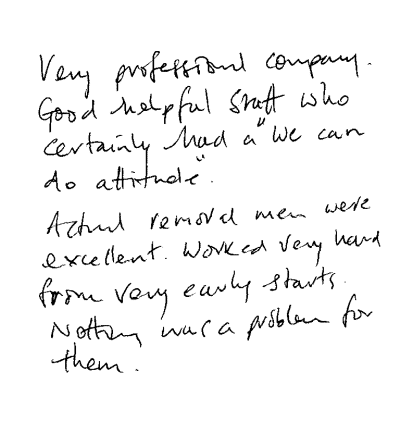 Very professional company.
Good helpful staff who
certainly had a "We can
do attitude".
Actual removal men were
excellent. Worked very hard
from very early starts.
Nothing was a problem for
them.